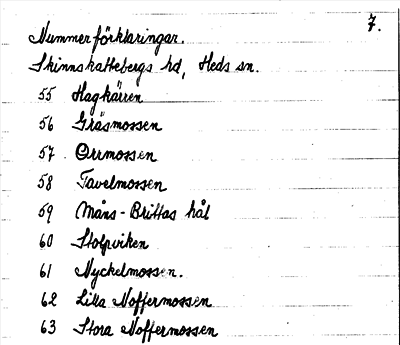 7.
Nummerförklaringar.
Skinnskattebergs hd, Heds sn.
55 Hagkärren
56 Gräsmossen
57 Orrmossen
58 Tavelmossen
59 Måns-Brittas hål
60 Stolpviken
61 Nyckelmossen.
62 Lilla Noffermossen
63 Stora Noffermossen